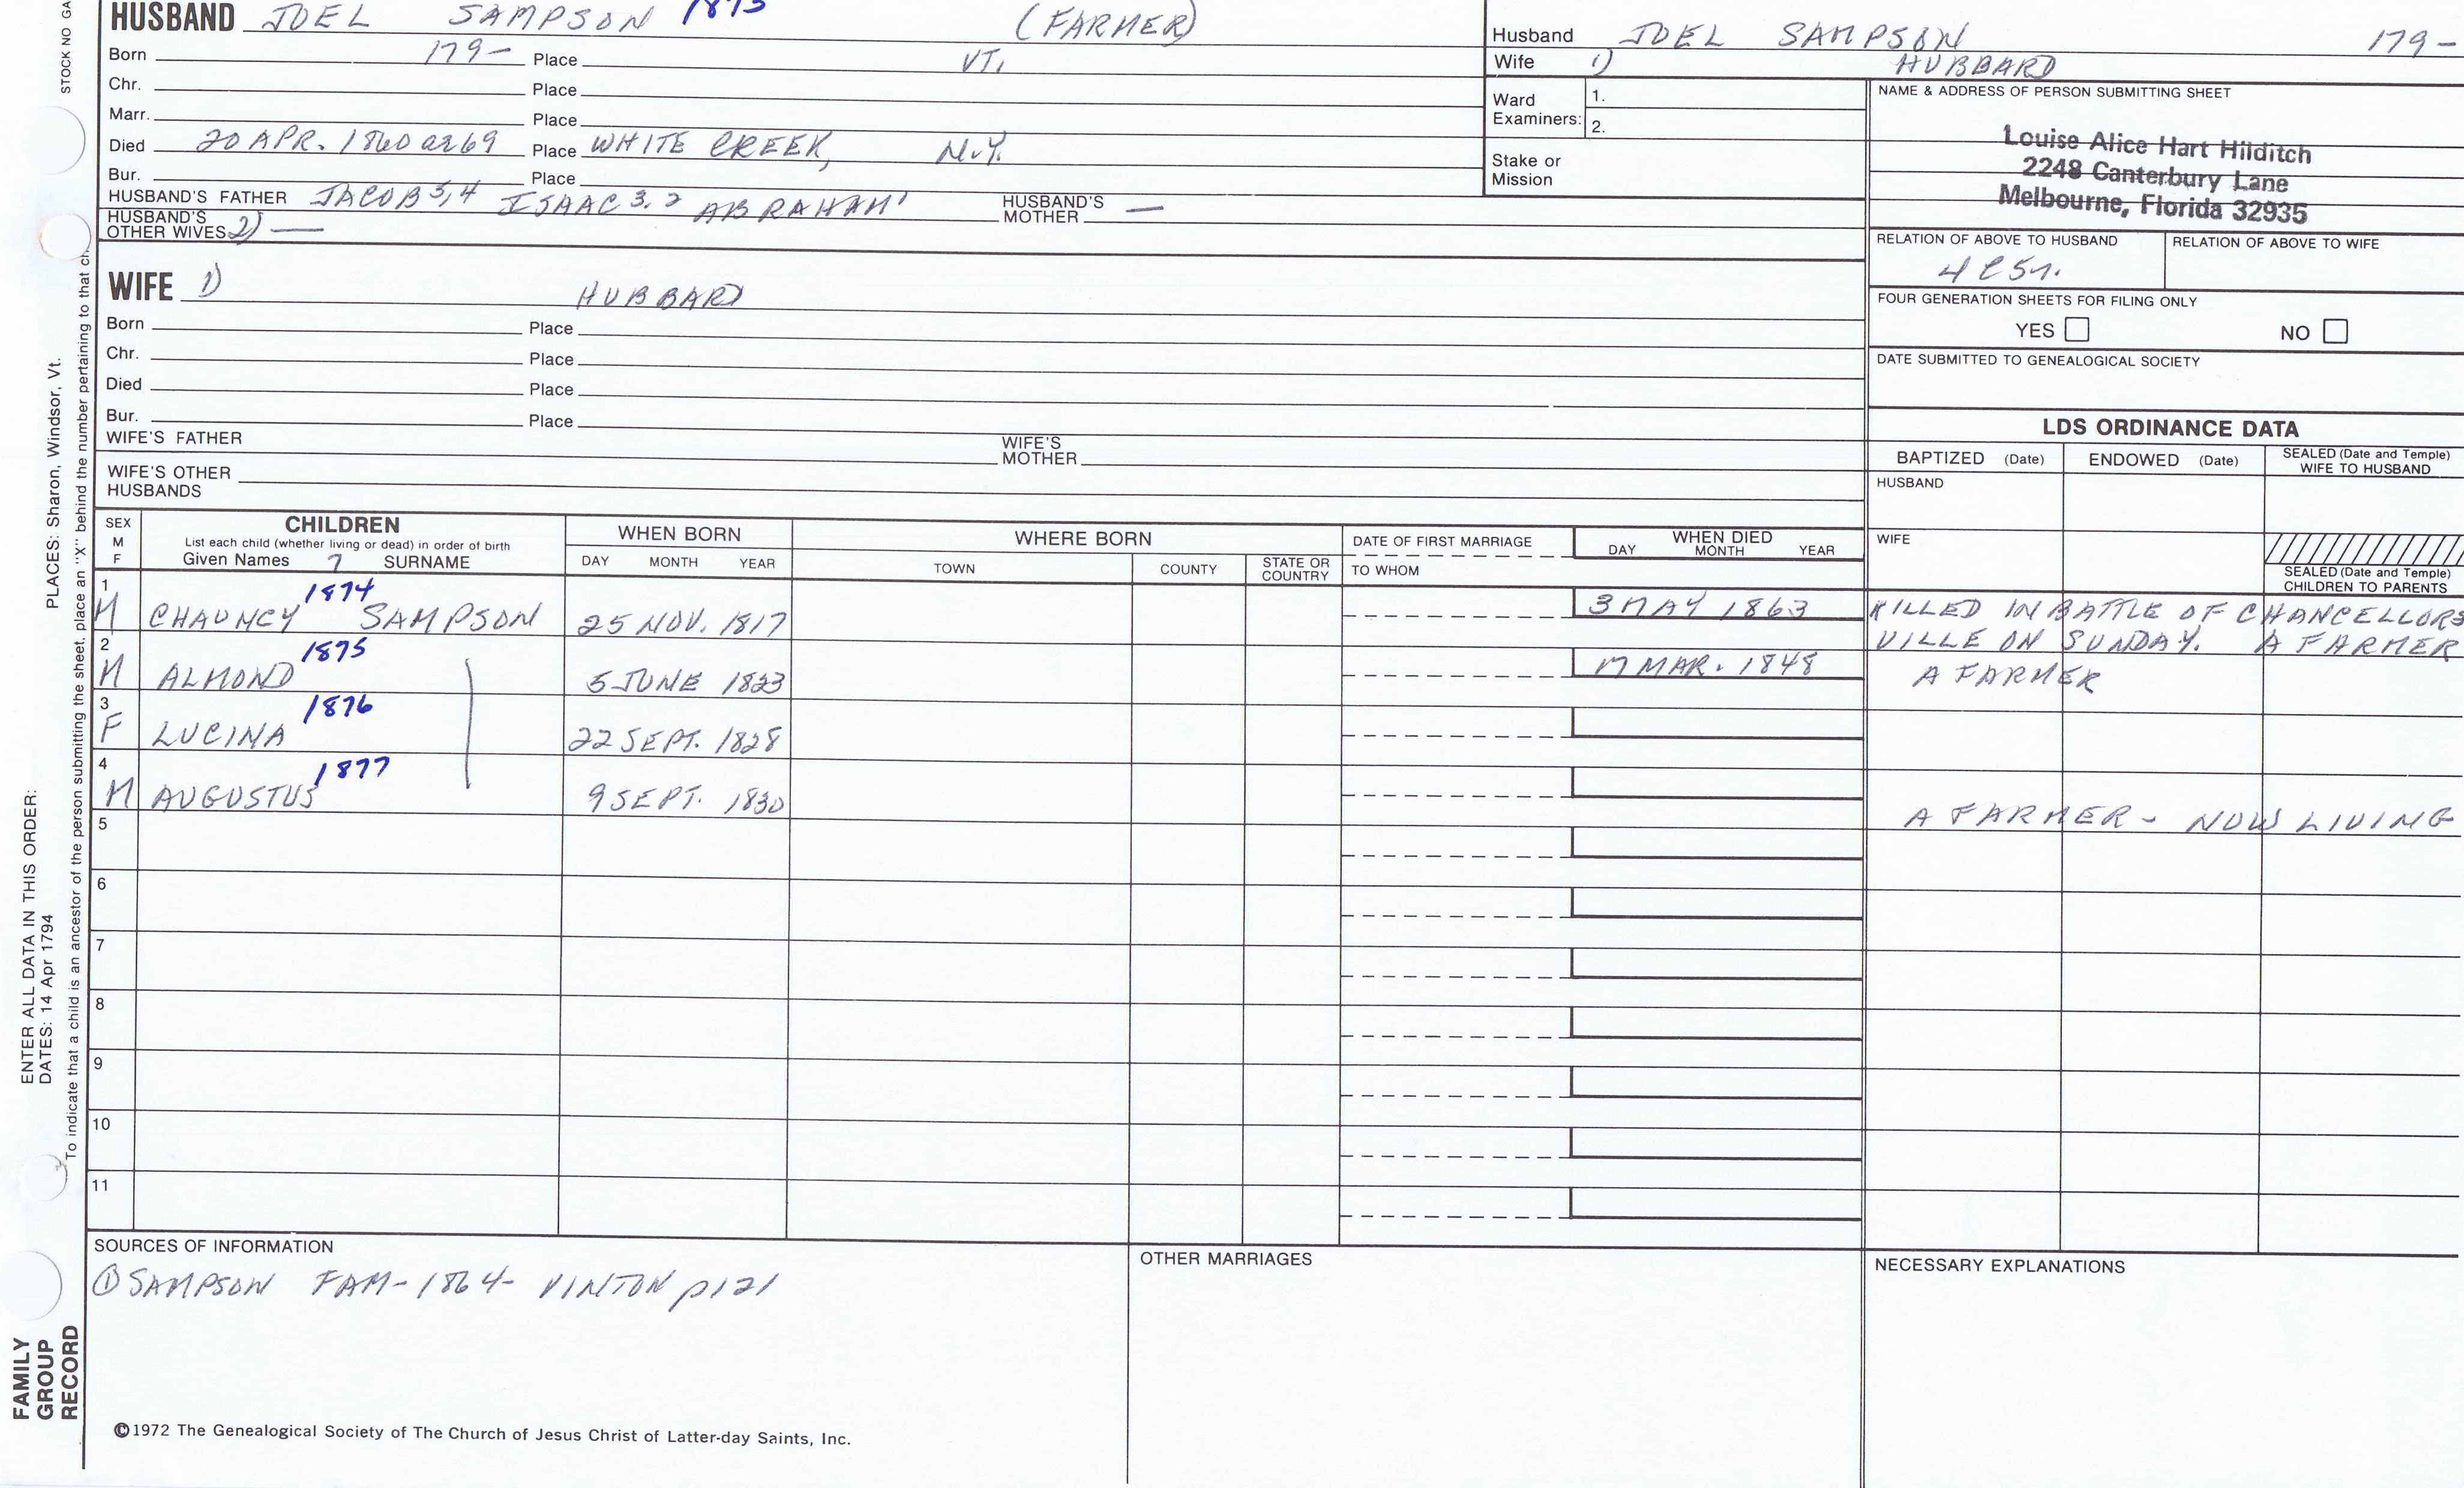 HUSBAND JOEL SAMPSON 1873 (FARMER)
Born 179- Place VT.
Chr. Place
Marr. Place
Died 20 APR. 1860 ae 69 Place WHITE CREEK, N.Y.
Bur. Place
HUSBAND'S FATHER JACOB 5,4 ISAAC 3,2 ABRAHAM 1 HUSBAND'S MOTHER —
HUSBAND'S OTHER WIVES 2) —
WIFE 1) HUBBARD
Born Place
Chr. Place
Died Place
Bur. Place
WIFE'S FATHER WIFE'S MOTHER
WIFE'S OTHER HUSBANDS
Husband JOEL SAMPSON 179-
Wife 1) HUBBARD
Ward Examiners: 1.
2.
Stake or Mission
NAME & ADDRESS OF PERSON SUBMITTING SHEET
Louise Alice Hart Hilditch
2248 Canterbury Lane
Melbourne, Florida 32935
RELATION OF ABOVE TO HUSBAND RELATION OF ABOVE TO WIFE
FOUR GENERATION SHEETS FOR FILING ONLY
YES NO
DATE SUBMITTED TO GENEALOGICAL SOCIETY
LDS ORDINANCE DATA
BAPTIZED (Date) ENDOWED (Date) SEALED (Date and Temple) WIFE TO HUSBAND
HUSBAND
WIFE
SEALED (Date and Temple) CHILDREN TO PARENTS
SEX M F CHILDREN WHEN BORN WHERE BORN DATE OF FIRST MARRIAGE WHEN DIED
List each child (whether living or dead) in order of birth
Given Names 7 SURNAME DAY MONTH YEAR TOWN COUNTY STATE OR COUNTRY TO WHOM DAY MONTH YEAR
1 M CHAUNCY 1874 SAMPSON 25 NOV. 1817 3 MAY 1863 KILLED IN BATTLE OF CHANCELLORS
VILLE ON SUNDAY. A FARMER
2 M ALMOND 1875 5 JUNE 1823 17 MAR. 1848 A FARMER
3 F LUCINA 1876 22 SEPT. 1828
4 M AUGUSTUS 1877 9 SEPT. 1830 A FARMER - NOW LIVING
5
6
7
8
9
10
11
SOURCES OF INFORMATION
① SAMPSON FAM- 1864- VINTON p121
OTHER MARRIAGES
NECESSARY EXPLANATIONS
©1972 The Genealogical Society of The Church of Jesus Christ of Latter-day Saints, Inc.
STOCK NO GA
PLACES: Sharon, Windsor, Vt.
ENTER ALL DATA IN THIS ORDER:
DATES: 14 Apr 1794
To indicate that a child is an ancestor of the person submitting the sheet, place an "X" behind the number pertaining to that
FAMILY
GROUP
RECORD